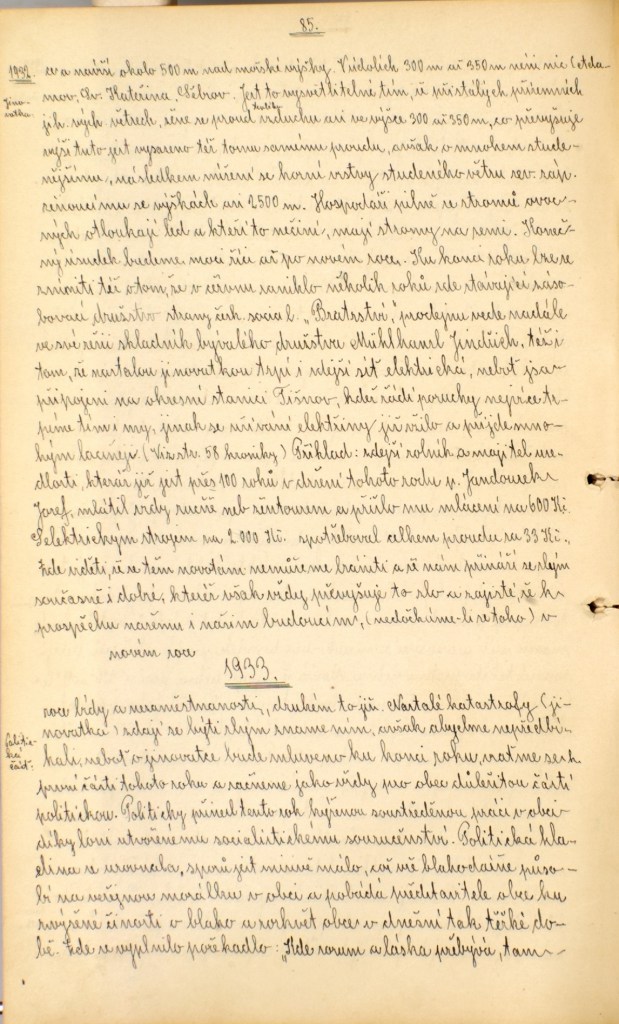 85.
1932.
Jíno-
vatka:
ce a návrší okolo 500 m nad mořské výšky. V údolích 300 m až 350 m není nic (Ada-
mov, Sv. Kateřina, Žďbrov. Jest to vysvětlitelné tím, že při stálých přízemních
jih. vých. větrech, žene se proud tento vzduchu asi ve výšce 300 až 350 m, co převyšuje
výši tuto jest vysazeno též tomu samému proudu, avšak o mnohem stude-
nějšímu, následkem míšení se horní vrstvy studeného větru sev. záp.
ženoucímu se výškách asi 2500 m. Hospodáři pilně ze stromů ovoc-
ných otloukají led a kteří to nečiní, mají stromy na zemi. Koneč-
ný úsudek budeme moci říci až po novém roce. Ku konci roku lze se
zmíniti též o tom, že v červnu zaniklo několik roků zde stávající záso-
bovací družstvo strany čsk. social. „Bratrství", prodejnu vede nadále
ve své režii skladník bývalého družstva Mühlhansl Jindřich, též i
tom, že nastalou jinovatkou trpí i zdejší síť elektrická, neboť jsa
připojeni na okresní stanici Tišnov, kdež řádí poruchy nejvíce tr-
píme tím i my, jinak se užívání elektřiny již vžilo a přijde mno-
hým laciněji. (Viz str. 58 kroniky) Příklad: zdejší rolník a majitel use-
dlosti, kteráž již jest přes 100 roků v držení tohoto rodu p. Jandourek
Josef, mlátil vždy ručně neb žentourem a přišlo mu mlácení na 600 Kč.
S elektrickým strojem na 2.000 Kč. spotřeboval celkem proudu za 33 Kč.,
Zde viděti, že se těm novotám nemůžeme brániti a že nám přináší se zlým
současně i dobré, kteréž však vždy převyšuje to zlo a zajisté, že k
prospěchu našemu i našim budoucím, (nedočkáme-li se toho) v
novém roce
1933.
Politic-
ká
část:
roce bídy a nezaměstnanosti, druhém to již. Nastalé katastrofy (ji-
novatka) zdají se býti zlým znamením, avšak abychme nepředbí-
hali, neboť o jinovatce bude mluveno ku konci roku, vraťme se k
první části tohoto roku a začneme jako vždy pro obec důležitou částí
politickou. Politicky přinesl tento rok kýženou soustředěnou práci v obci
díky loni utvořenému socialistickému souručenství. Politická hla-
dina se urovnala, sporů jest mizivě málo, což vše blahodárně půso-
bí na veřejnou morálku v obci a pobádá představitele obce ku
zvýšené činosti o blaho a rozkvět obce v dnešní tak těžké do-
bě. Zde se vyplnilo pořekadlo: „Kde rozum a láska přebývá, tam